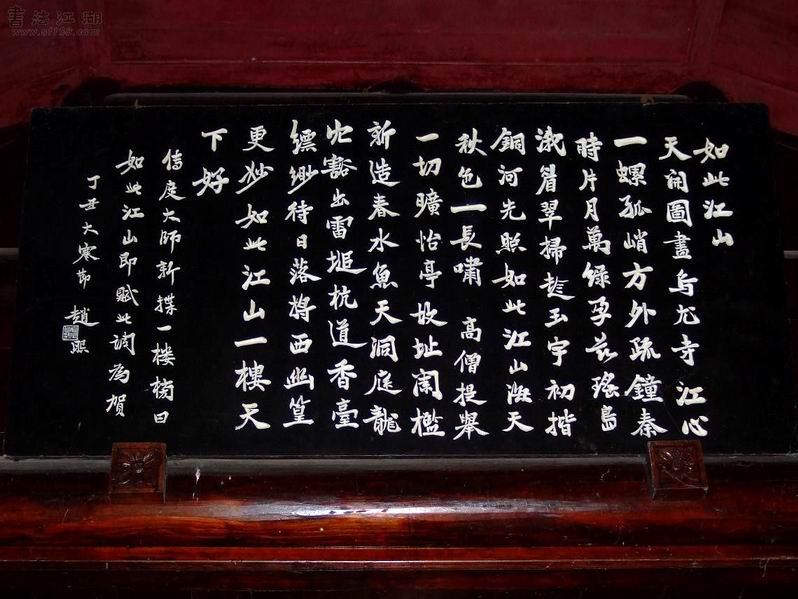 如此江山
天開圖畫烏尤寺江心
一螺孤峭方外疏鐘秦
時片月萬綠孕茲瑤島
眉翠掃趁玉宇初揩
銅河先照如此江山天
秋色一長嘯 高僧提舉
一切曠怡亭故址闌檻
新造春水魚天洞庭龍
穴豁出雷道香臺
縹緲待日落西幽篁
更妙如此江山一樓天
下好
傳度大師新一樓榜曰
如此江山即賦此調為賀
丁丑大寒節 趙熙
書法江湖